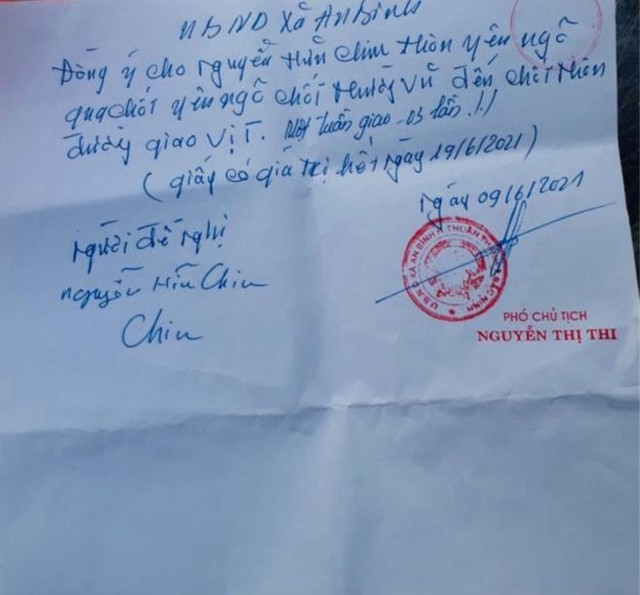 UBND Xã An Bình
Đồng ý cho Nguyễn Hữu Chiu thôn Yên Ngô
qua chốt Yên Ngô chốt Thường Vũ đến chốt thôn
đường giao Vịt. Một tuần giao 03 lần !)
(giấy có giá trị hết ngày 19/6/2021)
ngày 09/6/2021
người đề nghị
nguyễn Hữu Chiu
Chiu
U.B.N.D XÃ AN BÌNH H. THUẬN T. BẮC NINH
PHÓ CHỦ TỊCH
NGUYỄN THỊ THI